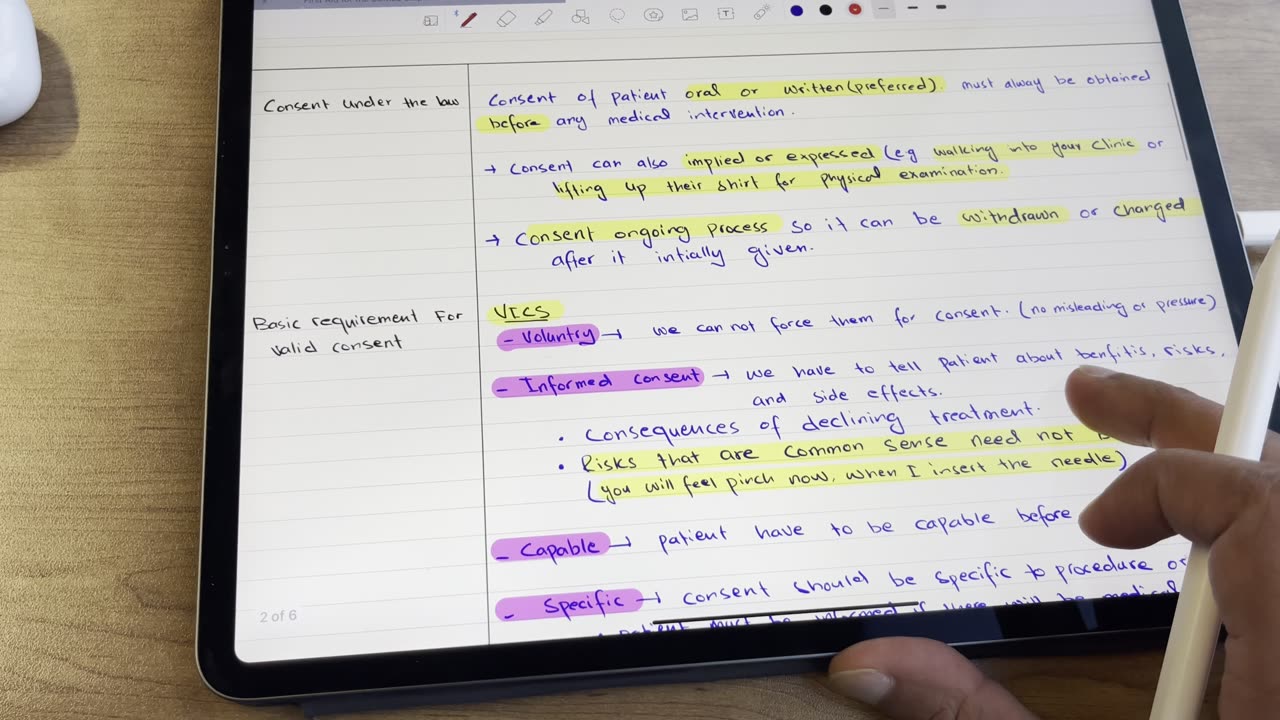 Consent under the law
Consent of patient oral or written (preferred). must alway be obtained
before any medical intervention.
→ Consent can also implied or expressed (eg walking into your clinic or
lifting up their shirt for physical examination.
→ Consent ongoing process so it can be withdrawn or changed
after it intially given.
Basic requirement For
valid consent
VICS
- Voluntry → we can not force them for consent. (no misleading or pressure)
- Informed consent → we have to tell patient about benfitis, risks,
and side effects.
• Consequences of declining treatment.
• Risks that are common sense need not
(you will feel pinch now, when I insert the needle)
- Capable → patient have to be capable before
- Specific → consent should be specific to procedure or
patient must be informed if there will be medical
2 of 6